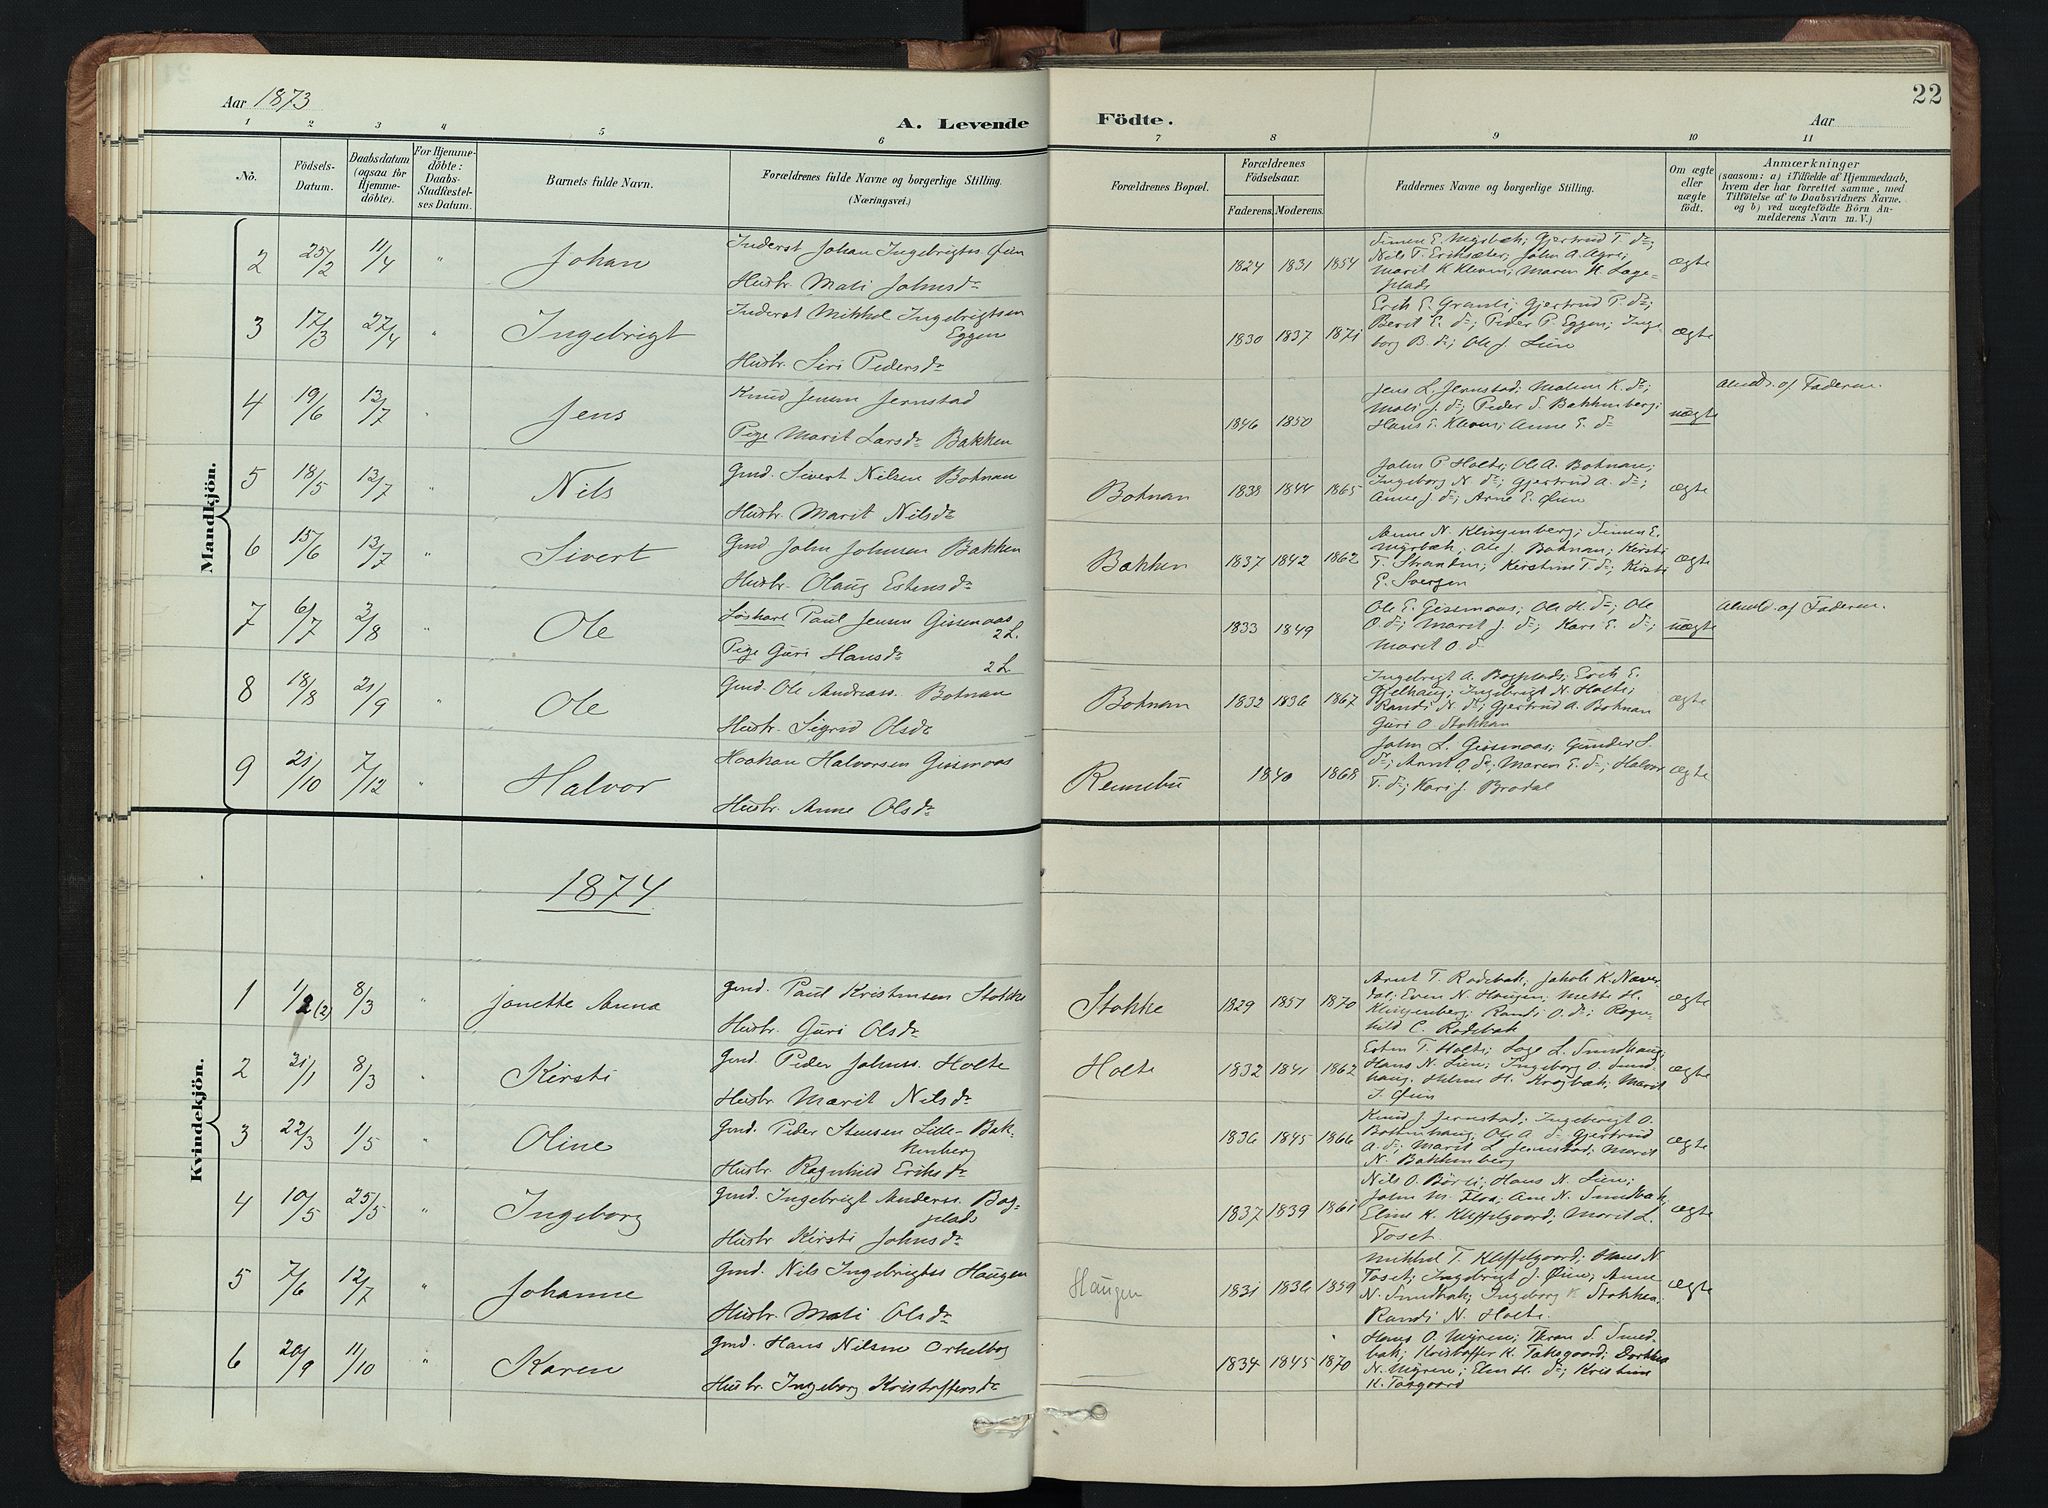 22
Aar 1873
Aar
A. Levende Födte.
1 2 3 4 5 6 7 8 9 10 11
No.
Födsels-Datum.
Daabsdatum (ogsaa for Hjemmedöbte).
For Hjemmedöbte: Daabs-Stadfæstelses Datum.
Barnets fulde Navn.
Forældrenes fulde Navne og borgerlige Stilling. (Næringsvei.)
Forældrenes Bopæl.
Forældrenes Födselsaar.
Faderens. Moderens.
Faddernes Navne og borgerlige Stilling.
Om ægte eller uægte födt.
Anmærkninger
(saasom: a) i Tilfælde af Hjemmedaab, hvem der har forrettet samme, med Tilföielse af to Daabsvidners Navne. og b) ved uægtefödte Börn Anmelderens Navn m. V.)
Mandkjön.
2 25/2 11/4 " Johan
Inderst Johan Ingebrigts Øien
Husbr. Mali Johnsdr
1824 1831 1854
Simen E. Myrbæk; Gjertrud T. do;
Nils T. Eriksæter; John A. Agre;
Marit K. Kleven; Maren H. Lage-
plads
ægte
3 17/3 27/4 " Ingebrigt
Inderst Mikkel Ingebrigtsen
Eggen
Husbr. Siri Pedersdr
1830 1837 1871
Erik E. Granli; Gjertrud P. do;
Berit E. do; Peder P. Eggen; Inge
borg B. do; Ole J. Lien
ægte
4 19/6 13/7 " Jens
Knud Jensen Jernstad
Pige Marit Larsdr Bakken
1846 1850
Jens L. Jernstad; Malene K. do;
Mali J. do; Peder S. Bakkenberg;
Hans E. Kleven; Anne E. do
uægte
Anmeldt af Faderen.
5 18/5 13/7 " Nils
Gmd. Sivert Nilsen Botnan
Husbr. Marit Nilsdr
Botnan
1838 1844 1865
John P. Holte; Ole A. Botnan;
Ingeborg N. do; Gjertrud A. do;
Anne J. do; Arne E. Øien
ægte
6 15/6 13/7 " Sivert
Gmd John Johnsen Bakken
Husbr. Olaug Estensdr
Bakken
1837 1842 1862
Anne N. Klingenberg; Simen E.
Myrbæk; Ole J. Botnan; Kirsti
T. Stranden; Kirstine T. do; Kirsti
E. Svergen
ægte
7 6/7 3/8 " Ole
Løskarl Paul Jensen Gissenaas
2 L.
Pige Guri Hansdr
2 L.
1833 1849
Ole E. Gissenaas; Ole H. do; Ole
O. do; Marit J. do; Kari E. do;
Marit O. d
uægte
Anmeldt af Faderen.
8 18/8 21/9 " Ole
Gmd. Ole Andreass. Botnan
Husbr. Sigrid Olsdr
Botnan
1832 1836 1867
Ingebrigt A. Bogplads; Erik E.
Gjelhaug; Ingebrigt N. Holte;
Randi N. do; Gjertrud A. Botnan
Guri O. Stokkan
ægte
9 21/10 7/12 " Halvor
Haakan Halvorsen Gissenaas
Husbr. Anne Olsdr
Rennebu
1840 1868
John L. Gissenaas; Gunder L.
do; Arnt O. do; Maren E. do; Halvor
T. do; Kari J. Brodal
ægte
Kvindekjön.
1874
1 1/2 (2) 8/3 " Jonette Anna
Gmd. Paul Kristensen Stokke
Husbr. Guri Olsdr
Stokke
1829 1851 1870
Arnt T. Rodebak; Jakob K. Naver
dal; Even N. Haugen; Mette H.
Klingenberg; Randi O. do; Ragn-
hild C. Rodebak
ægte
2 31/1 8/3 " Kirsti
Gmd. Peder Johnss. Holte
Husbr. Marit Nilsdr
Holte
1832 1841 1862
Esten T. Holte; Lage L. Sundhaug;
Hans N. Lien; Ingeborg O. Sund
haug. Helene H. Krogbæk; Marit
J. Øien
ægte
3 22/3 1/5 " Oline
Gmd. Peder Stensen Lille-Bak-
kenberg
Husbr. Ragnhild Eriksdr
1836 1845 1866
Knud J. Jernstad; Ingebrigt O.
Bottenhaug; Ole A. do; Gjertrud
A. do; Marit L. Jernstad; Marit
N. Bakkenberg
ægte
4 10/5 25/5 " Ingeborg
Gmd. Ingebrigt Anderss. Bog-
plads
Husbr. Kirsti Johnsdr
1837 1839 1861
Nils O. Børli; Hans N. Lien;
John M. Floa; Ane N. Sundbak
Eline K. Kleffelgaard; Marit L.
Toset.
ægte
5 7/6 12/7 " Johanne
Gmd. Nils Ingebrigts Haugen
Husbr. Mali Olsdr
Haugen
1831 1836 1859
Mikkel T. Kleffelgaard; Hans N.
Toset; Ingebrigt J. Øien; Anne
N. Sundbak; Ingeborg K. Stokken;
Randi N. Holte.
ægte
6 20/9 11/10 " Karen
Gmd. Hans Nilsen Orkelbog
Husbr. Ingeborg Kristoffersdr
1834 1845 1870
Hans O. Myren; Theran S. Smed-
bak; Kristoffer K. Taksgaard; Dorthea
N. Myren; Elen H. do; Kristine
K. Taagaard